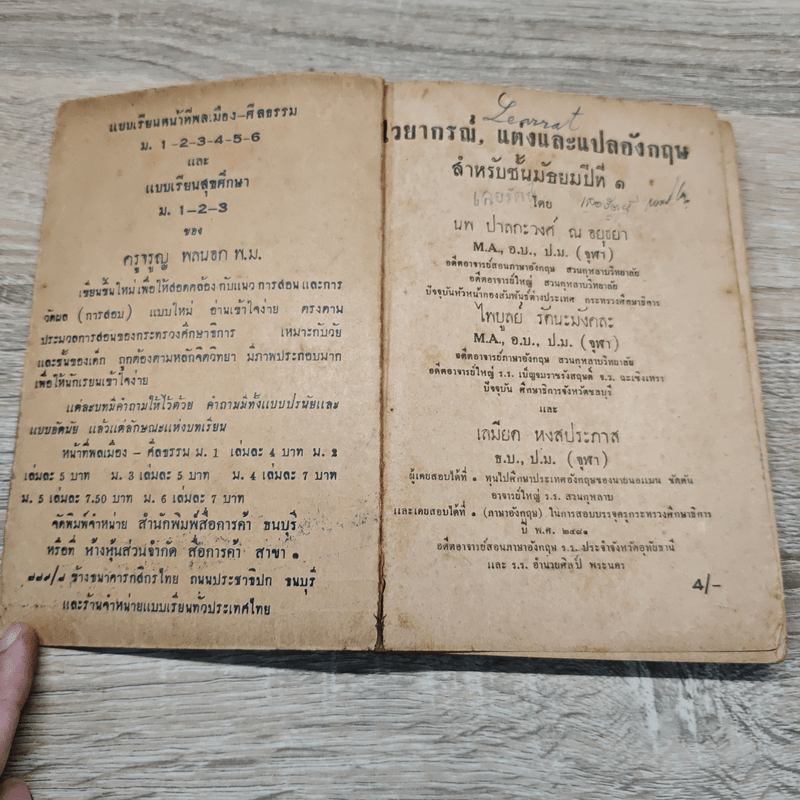 แบบเรียนหน้าที่พลเมือง-ศีลธรรม
ม. 1-2-3-4-5-6
และ
แบบเรียนสุขศึกษา
ม. 1-2-3
ของ
ครูจรูญ พลนอก พ.ม.
เขียนขึ้นใหม่เพื่อให้สอดคล้องกับแนวการสอนและการ
วัดผล (การสอบ) แบบใหม่ อ่านเข้าใจง่าย ตรงตาม
ประมวลการสอนของกระทรวงศึกษาธิการ เหมาะกับวัย
และชั้นของเด็ก ถูกต้องตามหลักจิตวิทยา มีภาพประกอบมาก
เพื่อให้นักเรียนเข้าใจง่าย
แต่ละบทมีคำถามให้ไว้ด้วย คำถามมีทั้งแบบปรนัยและ
แบบอัตนัย แล้วแต่ลักษณะแห่งบทเรียน
หน้าที่พลเมือง - ศีลธรรม ม. 1 เล่มละ 4 บาท ม. 2
เล่มละ 5 บาท ม. 3 เล่มละ 5 บาท ม. 4 เล่มละ 7 บาท
ม. 5 เล่มละ 7.50 บาท ม. 6 เล่มละ 7 บาท
จัดพิมพ์จำหน่าย สำนักพิมพ์สื่อการค้า ธนบุรี
หรือที่ ห้างหุ้นส่วนจำกัด สื่อการค้า สาขา ๑
ข้างธนาคารกสิกรไทย ถนนประชาธิปก ธนบุรี
และร้านจำหน่ายแบบเรียนทั่วประเทศไทย
Lenrat
ไวยากรณ์, แต่งและแปลอังกฤษ
สำหรับชั้นมัธยมปีที่ ๑
เลอรัตน์
โดย
นพ ปาลกะวงศ์ ณ อยุธยา
M.A., อ.บ., ป.ม. (จุฬา)
อดีตอาจารย์สอนภาษาอังกฤษ สวนกุหลาบวิทยาลัย
อดีตอาจารย์ใหญ่ สวนกุหลาบวิทยาลัย
ปัจจุบันหัวหน้ากองสัมพันธ์ต่างประเทศ กระทรวงศึกษาธิการ
ไพบูลย์ รัตนะมังคละ
M.A., อ.บ., ป.ม. (จุฬา)
อดีตอาจารย์ภาษาอังกฤษ สวนกุหลาบวิทยาลัย
อดีตอาจารย์ใหญ่ ร.ร. เบ็ญจมราชรังสฤษดิ์ จ.ว. ฉะเชิงเทรา
ปัจจุบัน ศึกษาธิการจังหวัดชลบุรี
และ
เสมียด หงสประภาส
ธ.บ., ป.ม. (จุฬา)
ผู้เคยสอบได้ที่ ๑ ทุนไปศึกษาประเทศอังกฤษของนายนอแมน ซัตตัน
อาจารย์ใหญ่ ร.ร. สวนกุหลาบ
และเคยสอบได้ที่ ๑ (ภาษาอังกฤษ) ในการสอบบรรจุครูกระทรวงศึกษาธิการ
ปี พ.ศ. ๒๔๘๑
อดีตอาจารย์สอนภาษาอังกฤษ ร.ร. ประจำจังหวัดอุทัยธานี
และ ร.ร. อำนวยศิลป์ พระนคร
4/-